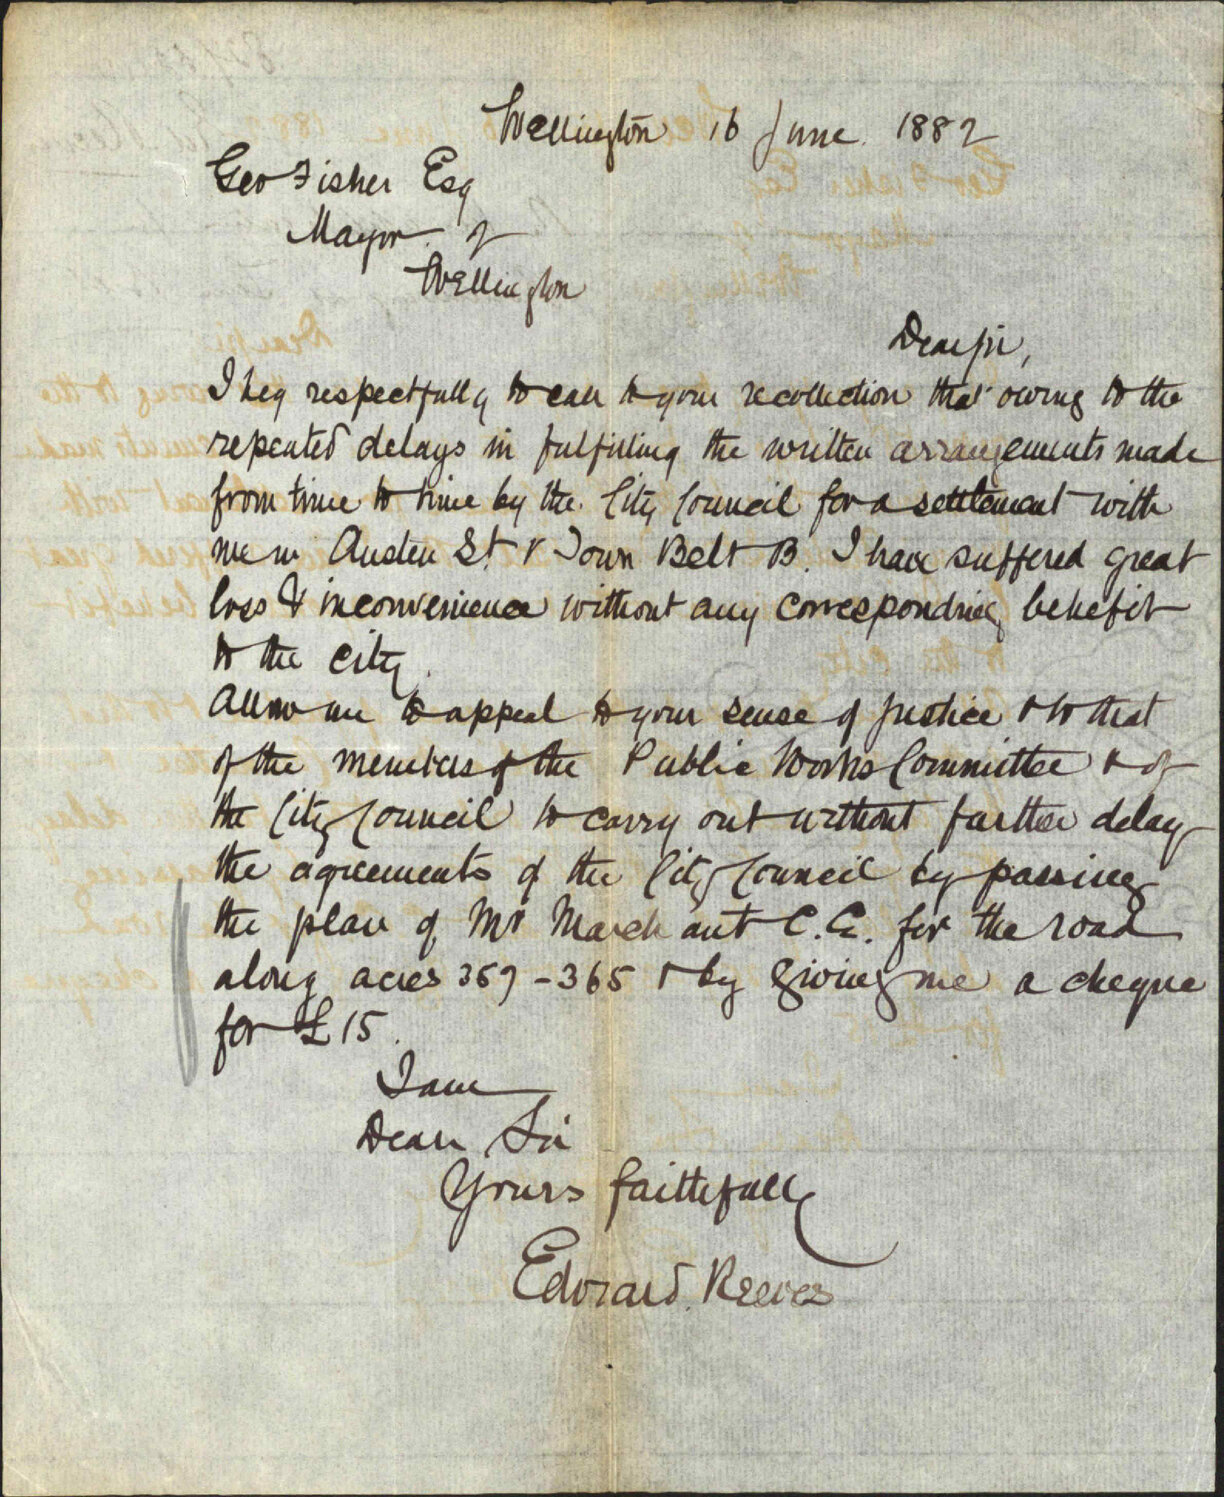 Wellington 16 June. 1882
Geo Fisher Esq
Mayor of
Wellington
Dear Sir,
I beg respectfully to call to your recollection that owing to the
repeated delays in fulfilling the written arrangements made
from time to time by the City Council for a settlement with
me in Austen St & Town Belt B. I have suffered great
loss & inconvenience without any corresponding benefit
to the city.
Allow me to appeal to your sense of justice & to that
of the members of the Public Works Committee & of
the City Council to carry out without further delay
the agreements of the City Council by passing
the plan of Mr Marchant C.E. for the road
along acres 367 - 365 & by giving me a cheque
for £15.
I am
Dear Sir
Yours faithfully
Edward. Reeves